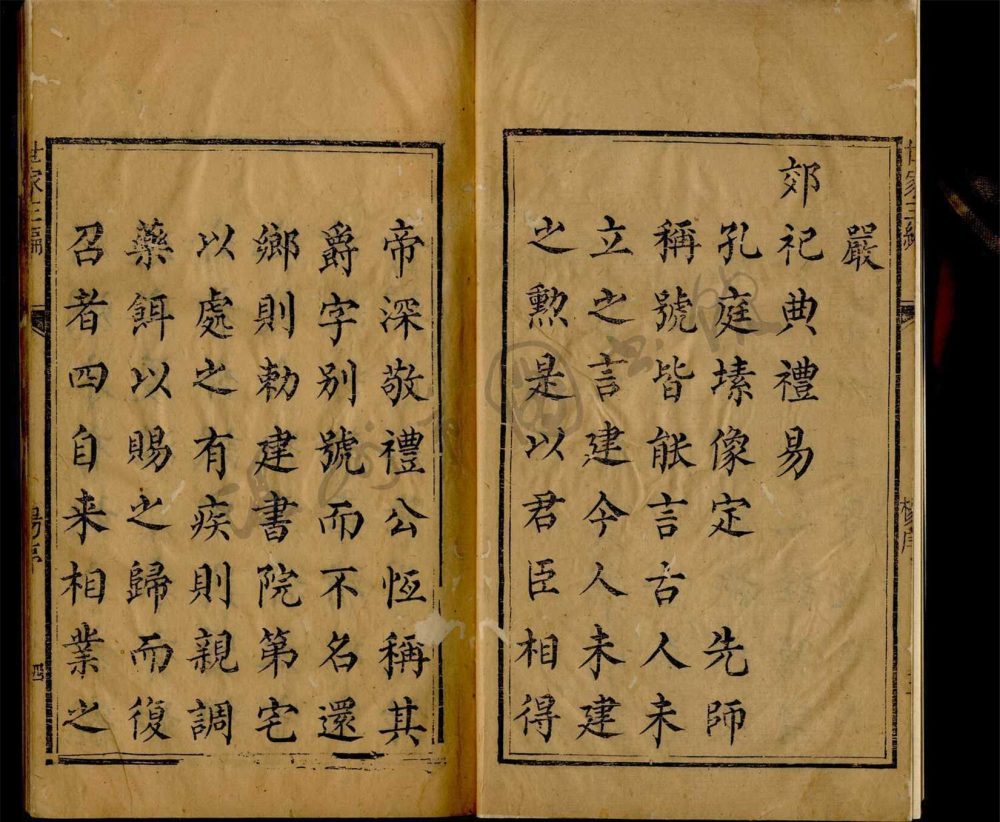 嚴
郊祀典禮易
孔庭塐像定 先師
稱號皆能言古人未
立之言建今人未建
之勲是以君臣相得
帝深敬禮公恆稱其
爵字別號而不名還
鄉則勅建書院第宅
以處之有疾則親調
藥餌以賜之歸而復
召者四自来相業之
世家
四